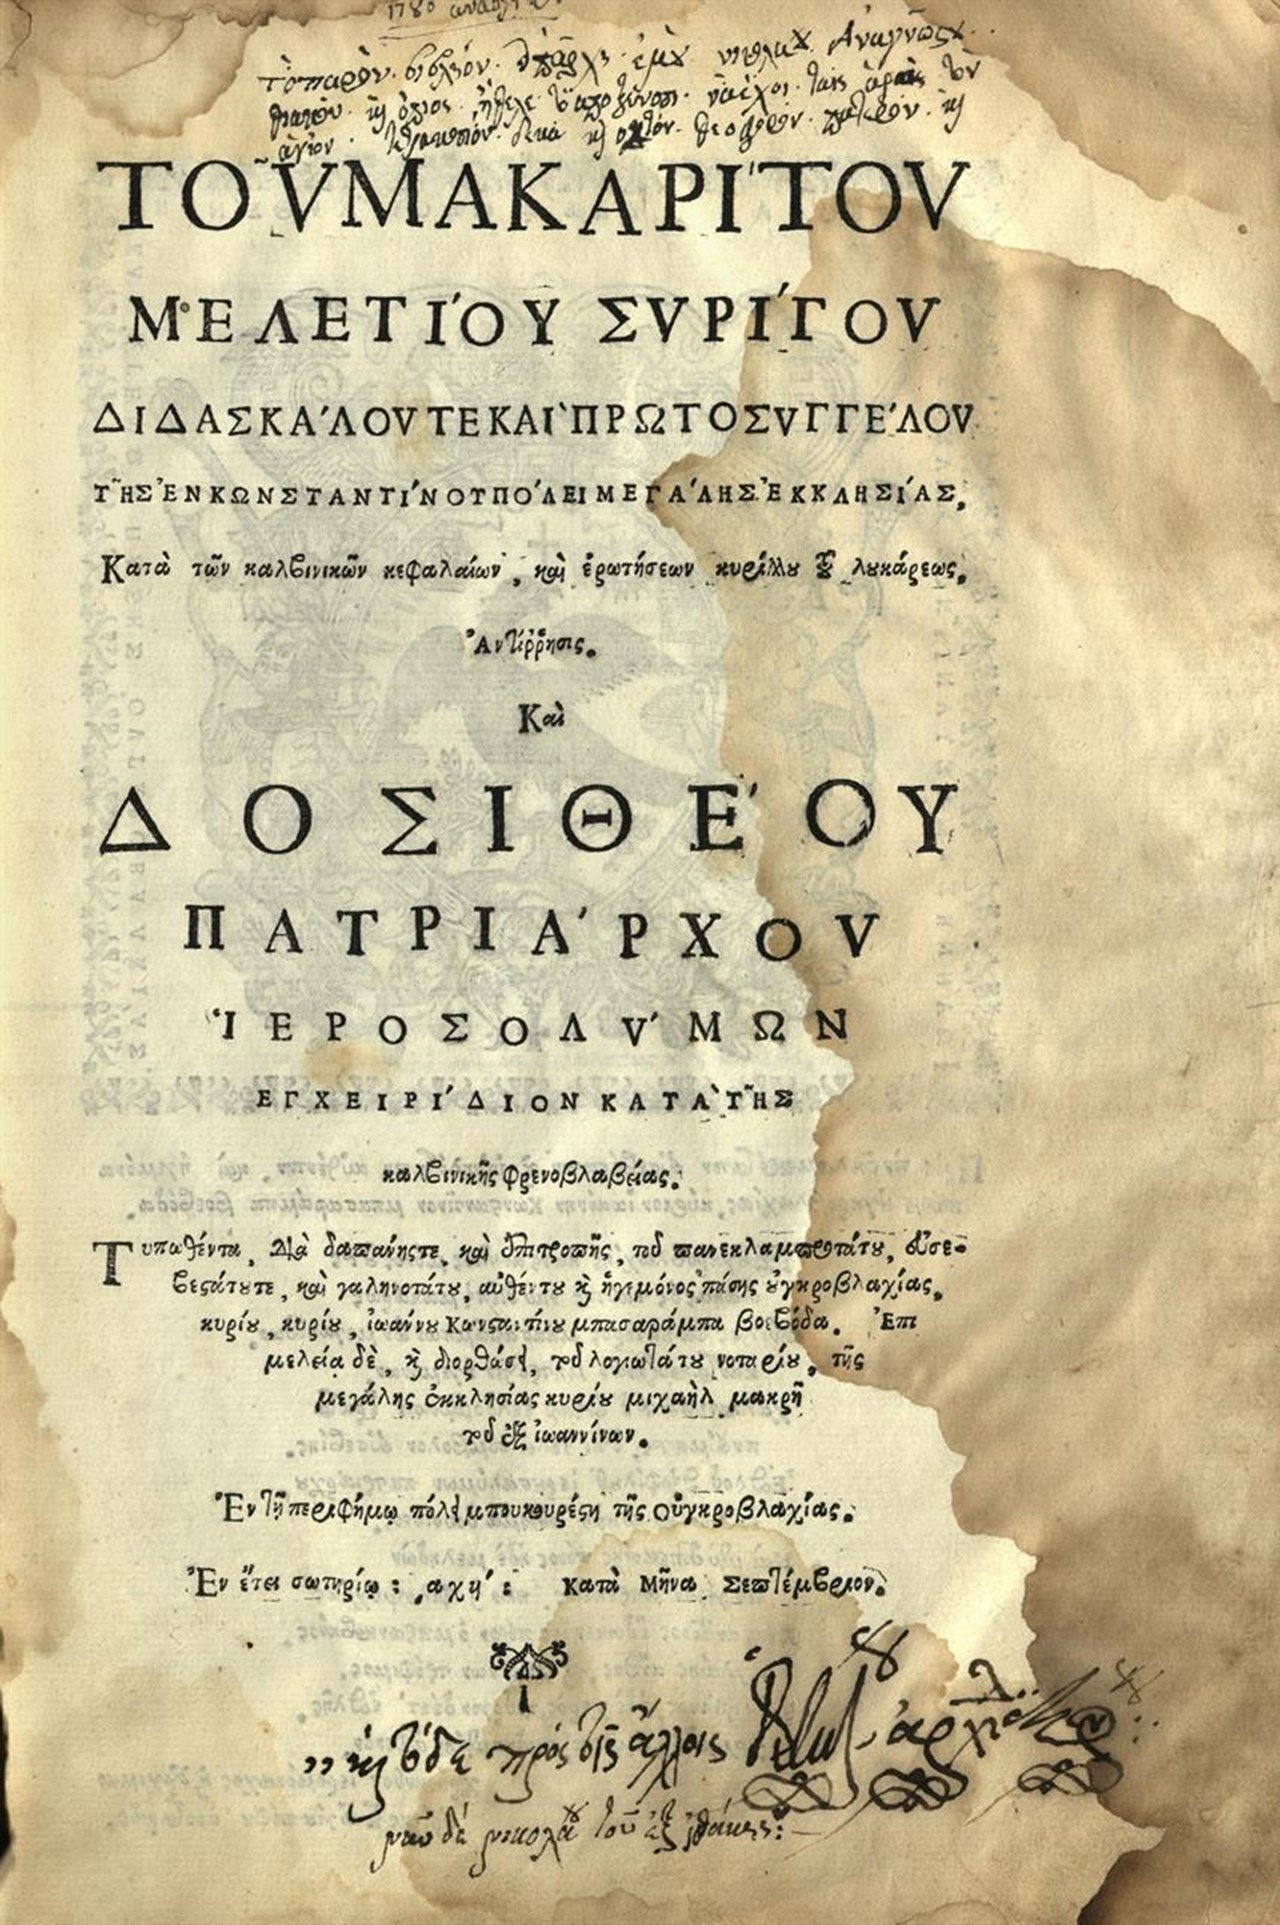 1780
τὸ παρὸν βιβλίον ὑπάρχει ἐμοῦ νικολάου Ἀναγνώστου
καὶ ὅποιος ἤθελε τὸ ἀποξενώσῃ νὰ ἔχῃ ταῖς ἀραῖς τῶν
ἁγίων τριακοσίων δέκα καὶ ὀκτὼ θεοφόρων πατέρων καὶ
ΤΟῦ ΜΑΚΑΡΊΤΟΥ
ΜΕΛΕΤΊΟΥ ΣΥΡΊΓΟΥ
ΔΙΔΑΣΚΆΛΟΥ ΤΕ ΚΑῚ ΠΡΩΤΟΣΥΓΓΈΛΟΥ
Τῆς ἘΝ ΚΩΝΣΤΑΝΤΊΝΟΥΠΌΛΕΙ ΜΕΓΆΛΗΣ ἘΚΚΛΗΣΊΑΣ.
Κατὰ τῶν καλβινικῶν κεφαλαίων, καὶ ἐρωτήσεων κυρίλλου τοῦ λουκάρεως.
Ἀντίῤῥησις.
Καὶ
ΔΟΣΙΘΈΟΥ
ΠΑΤΡΙΆΡΧΟΥ
ἹΕΡΟΣΟΛΎΜΩΝ
ΕΓΧΕΙΡΊΔΙΟΝ ΚΑΤᾺ Τῆς
καλβινικῆς φρενοβλαβείας.
Τυπωθέντα, Διὰ δαπάνης τε, καὶ ἐπιτροπῆς, τοῦ πανεκλαμπροτάτου, εὐσε-
βεστάτου τε, καὶ γαληνοτάτου, αὐθέντου καὶ ἡγεμόνος πάσης οὐγκροβλαχίας.
κυρίου, κυρίου, ἰωάννου Κωνσταντίνου μπασαράμπα βοεβόδα. Ἐπι
μελείᾳ δὲ, καὶ διορθώσει, τοῦ λογιωτάτου νοταρίου, τῆς
μεγάλης ἐκκλησίας κυρίου μιχαὴλ μακρῆ
τοῦ ἐξ ἰωαννίνων.
Ἐν τῇ περιφήμῳ πόλει μπουκουρέστῃ τῆς οὐγκροβλαχίας.
Ἐν ἔτει σωτηρίῳ: ͵αχϟ΄: Κατὰ Μῆνα Σεπτέμβριον.
καὶ τόδε πρὸς τοῖς ἄλλοις
νῦν δέ νικολάου τοῦ ἐξ ἰθάκης: